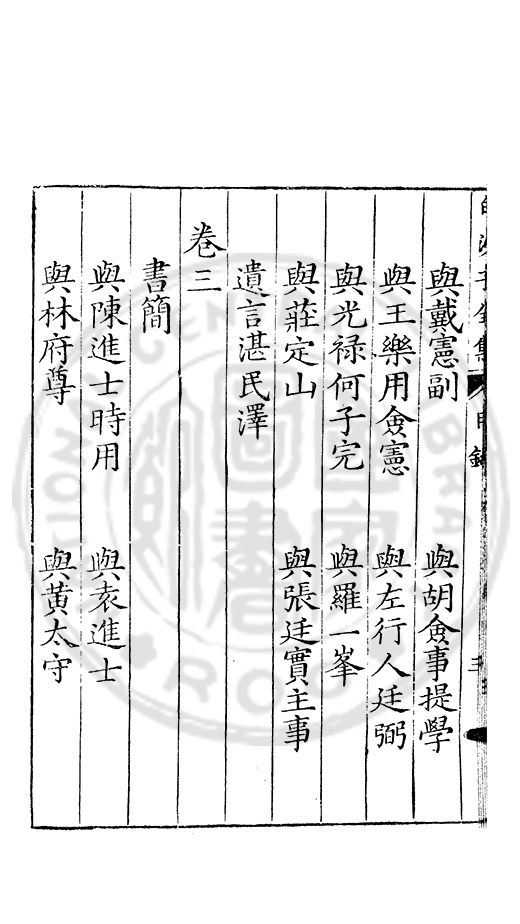 與戴憲副 與胡僉事提學
與王樂用僉憲 與左行人廷弼
與光禄何子完 與羅一峯
與莊定山 與張廷實主事
遺言湛民澤
卷三
書簡
與陳進士時用 與袁進士
與林府尊 與黄太守